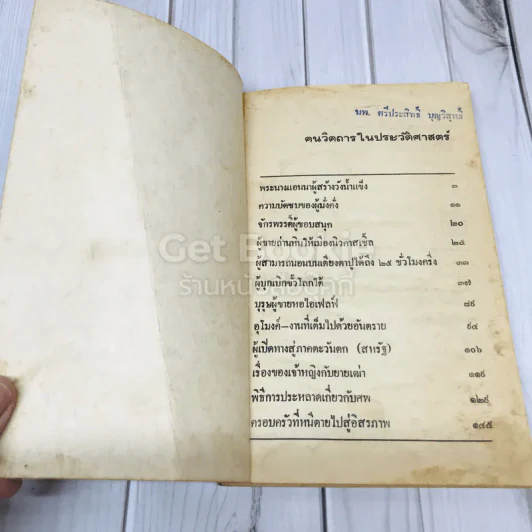 นพ. ศรีประสิทธิ์ บุญวิสุทธิ์
คนวิตถารในประวัติศาสตร์
พระนางแอนนาผู้สร้างวังน้ำแข็ง ๓
ความบัดซบของผู้มั่งคั่ง ๑๑
จักรพรรดิ์ผู้ชอบสนุก ๒๐
ผู้ขายถ่านหินให้เมืองนิวคาสเซิ่ล ๒๕
ผู้สามารถนอนบนเตียงตาปูได้ถึง ๒๕ ชั่วโมงครึ่ง ๓๓
ผู้บุกเบิกขั้วโลกใต้ ๓๗
บุรุษผู้ขายหอไอเฟลฟ์ ๘๙
อุโมงค์–งานที่เต็มไปด้วยอันตราย ๙๔
ผู้เปิดทางสู่ภาคตะวันตก (สหรัฐ) ๑๐๖
เรื่องของเจ้าหญิงกับยายเฒ่า ๑๑๙
พิธีการประหลาดเกี่ยวกับศพ ๑๒๙
ครอบครัวที่หนีตายไปสู่อิสรภาพ ๑๔๕
Get Book.in
ร้านหนังสือบุ๊คกี้